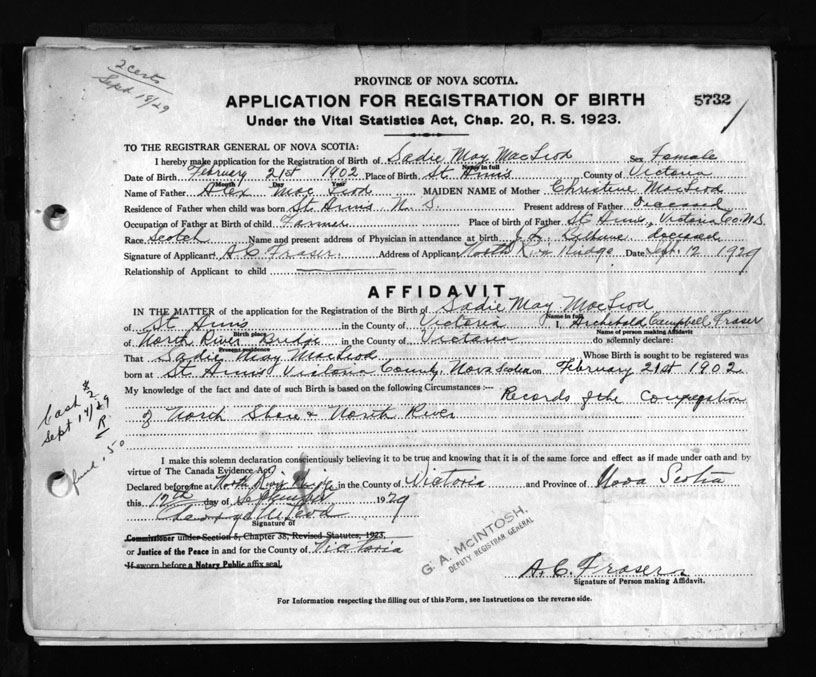 2 Certs
Sept 19/29
PROVINCE OF NOVA SCOTIA.
APPLICATION FOR REGISTRATION OF BIRTH
5732
Under the Vital Statistics Act, Chap. 20, R. S. 1923.
TO THE REGISTRAR GENERAL OF NOVA SCOTIA:
I hereby make application for the Registration of Birth of Sadie May MacLeod Sex Female
Name in full
Date of Birth February 21st 1902 Place of Birth St Anns County of Victoria
Month Day Year
Name of Father Alex MacLeod MAIDEN NAME of Mother Christine MacLeod
Residence of Father when child was born St Anns N. S. Present address of Father Deceased
Occupation of Father at Birth of child Farmer Place of birth of Father St Anns, Victoria Co. N.S.
Race Scotch Name and present address of Physician in attendance at birth J. L. Bethune deceased
Signature of Applicant A C Fraser. Address of Applicant North R. Bridge Date Sept. 12 1929
Relationship of Applicant to child
AFFIDAVIT
IN THE MATTER of the application for the Registration of the Birth of Sadie May MacLeod
Name in full
of St Anns in the County of Victoria I, Archibald Campbell Fraser
Birth place Name of person making Affidavit
of North River Bridge in the County of Victoria do solemnly declare:
Present residence
That Sadie May MacLeod Whose Birth is sought to be registered was
born at St Anns Victoria County, Nova Scotia on February 21st 1902.
My knowledge of the fact and date of such Birth is based on the following Circumstances:— Records of the Congregation
of North Shore & North River
Cash $2
Sept 19/29
R.
fwd .50
I make this solemn declaration conscientiously believing it to be true and knowing that it is of the same force and effect as if made under oath and by
virtue of The Canada Evidence Act
Declared before me at North River Bridge in the County of Victoria and Province of Nova Scotia
this 12th day of September 1929
Signature of
Commissioner under Section 5, Chapter 38, Revised Statutes, 1923,
or Justice of the Peace in and for the County of Victoria
If sworn before a Notary Public affix seal.
G. A. McINTOSH,
DEPUTY REGISTRAR GENERAL
A. C. Fraser
Signature of Person making Affidavit.
For Information respecting the filling out of this Form, see Instructions on the reverse side.